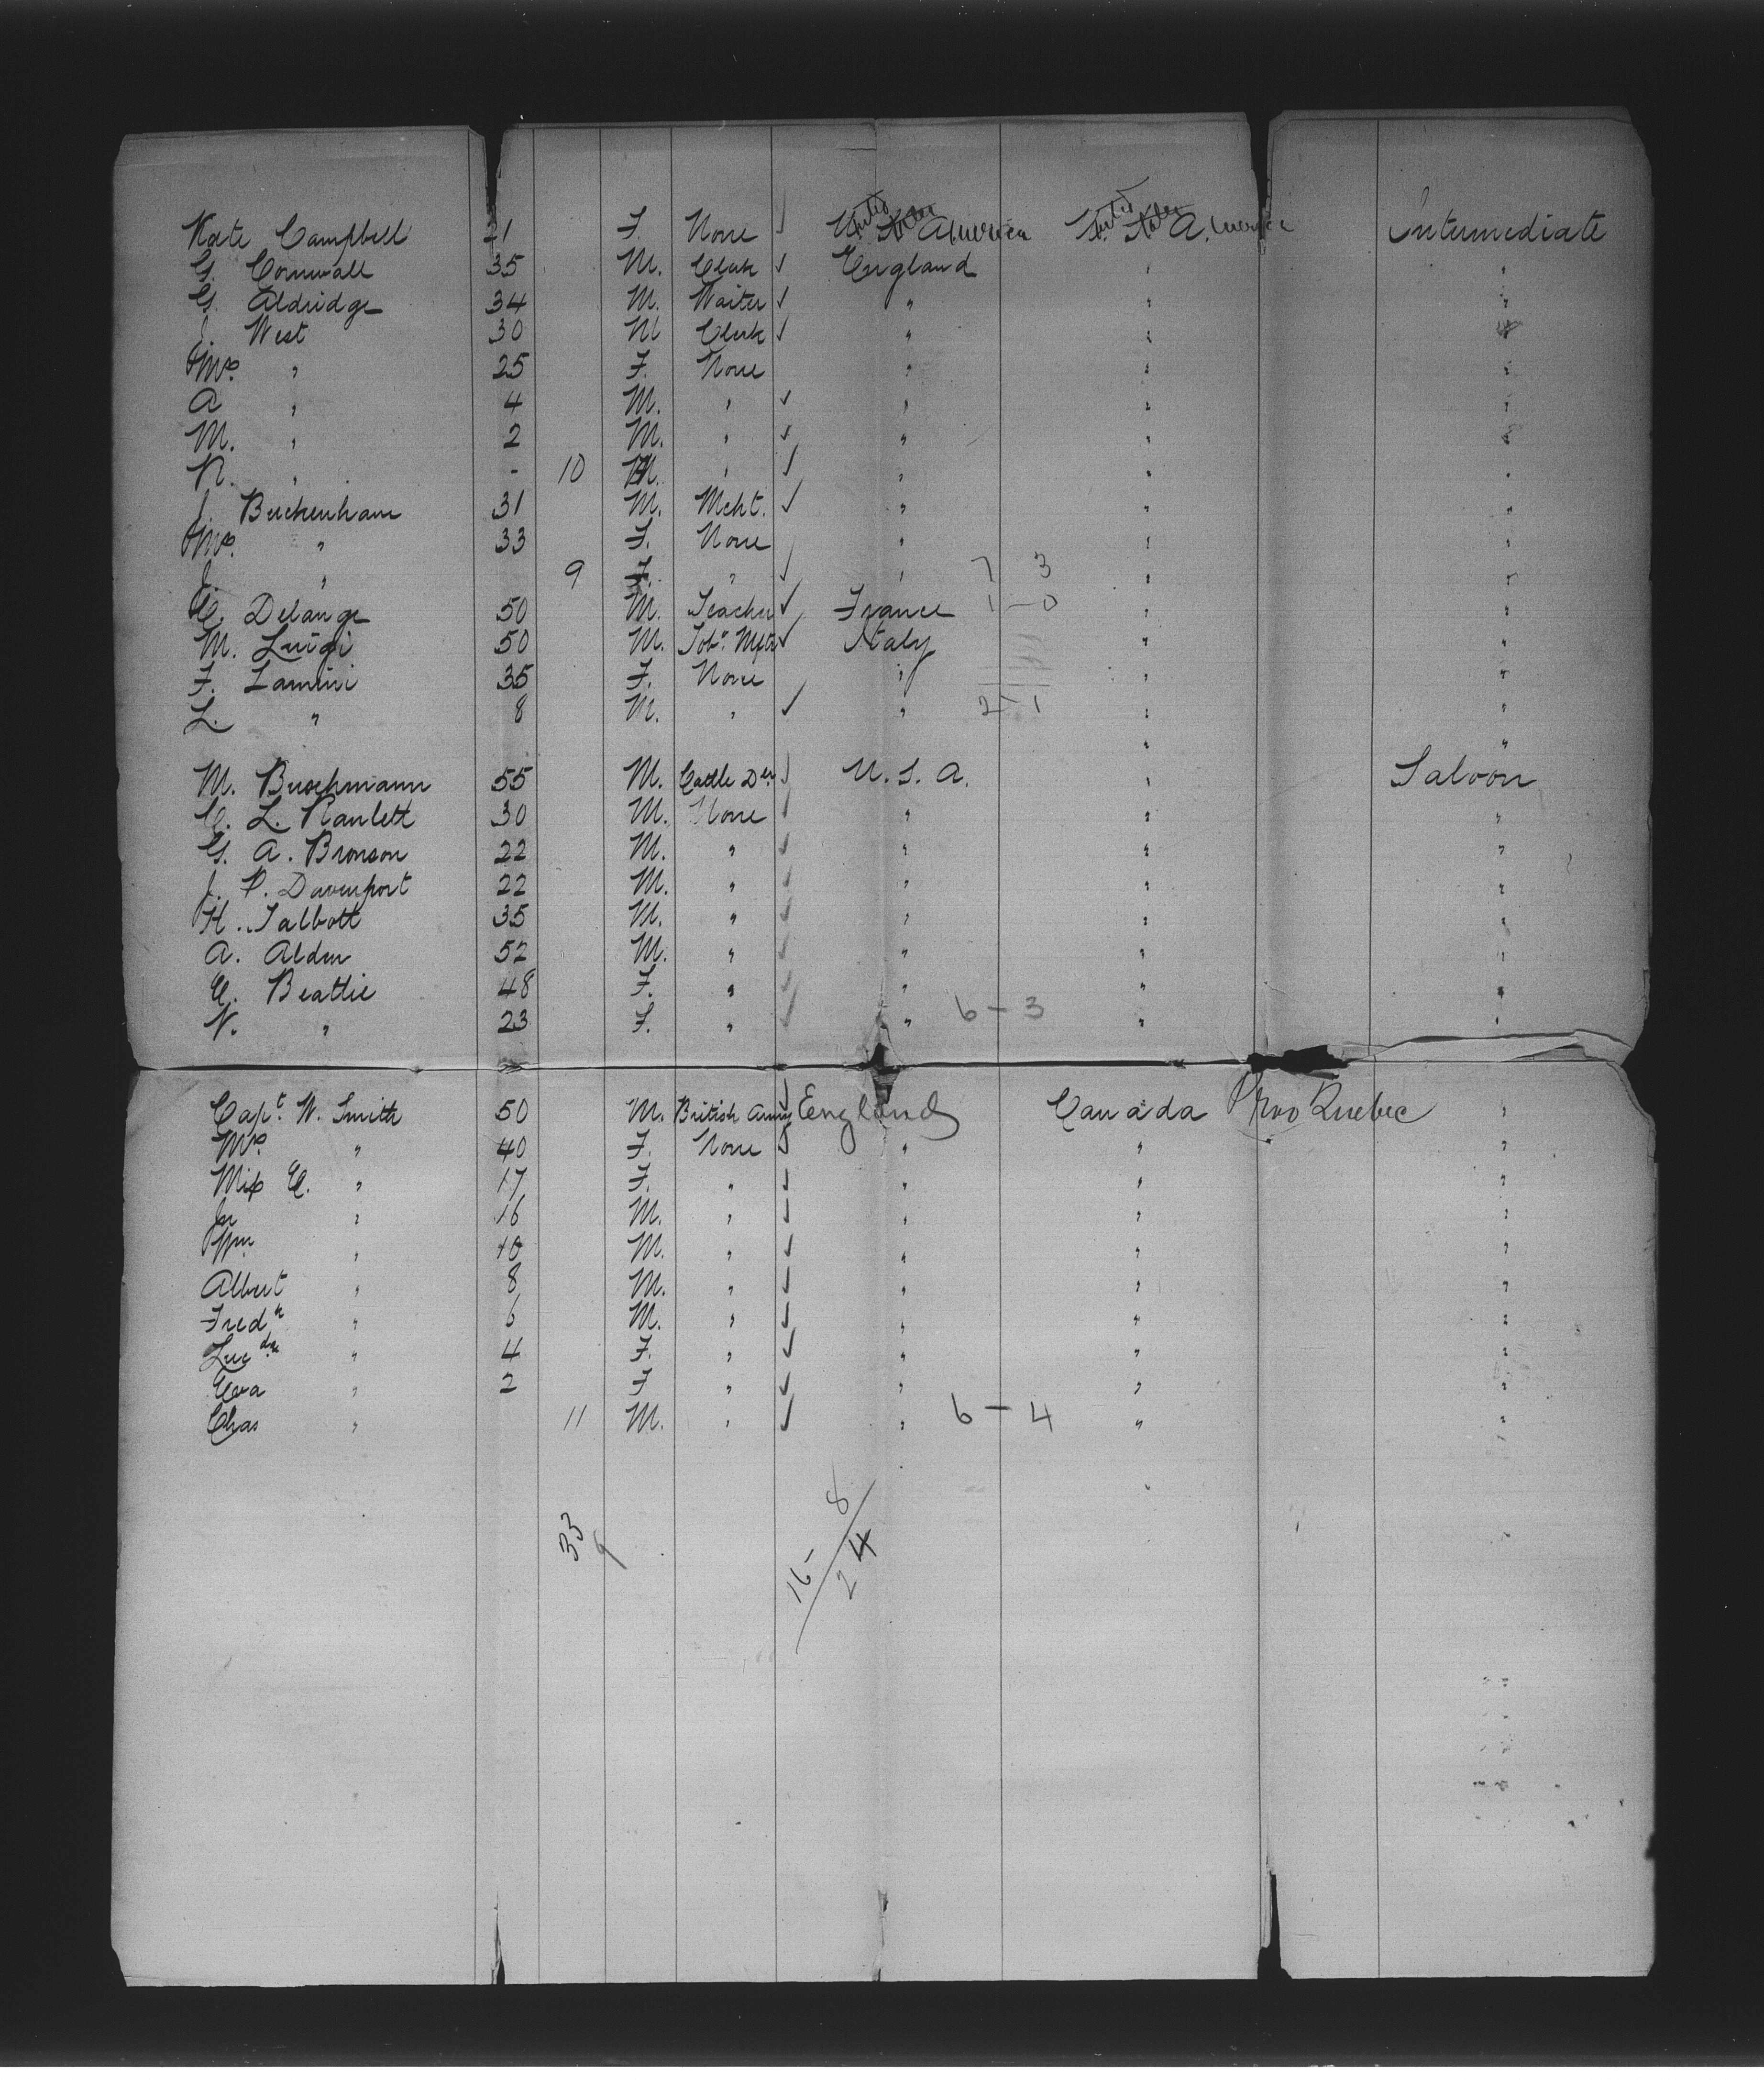 Kate Campbell 21 F. None ✓ United States America United States America Intermediate
G. Cornwall 35 M. Clerk ✓ England " "
G. Aldridge 34 M. Waiter ✓ " " "
J. West 30 M Clerk ✓ " " "
Mrs. " 25 F. None " " "
A " 4 M. " ✓ " " "
M. " 2 M. " ✓ " " "
R. " - 10 M. " ✓ " " "
J. Buckenham 31 M. Mcht. ✓ " " "
Mrs. " 33 F. None " " "
J. " 9 F. " ✓ " 7 3 " "
C. Delange 50 M. Teacher ✓ France 1 - 0 " "
M. Luigi 50 M. Tobo. Mftr ✓ Italy " "
F. Zamini 35 F. None " " "
L. " 8 M. " ✓ " 2 1 " "
" "
M. Buschmann 55 M. Cattle Dlr ✓ U. S. A. " Saloon
C. L. Ranlett 30 M. None ✓ " " "
G. A. Bronson 22 M. " ✓ " " "
J. P. Davenport 22 M. " ✓ " " "
H. Talbott 35 M. " ✓ " " "
A. Alden 52 M. " ✓ " " "
E. Beattie 48 F. " ✓ " " "
N. " 23 F. " ✓ " 6 - 3 " "
Capt. W. Smith 50 M. British Army ✓ England Canada Prov Quebec "
Mrs. " 40 F. None ✓ " " "
Miss E. " 17 F. " ✓ " " "
Jn " 16 M. " ✓ " " "
Wm " 10 M. " ✓ " " "
Albert " 8 M. " ✓ " " "
Fredk " 6 M. " ✓ " " "
" 4 F. " ✓ " " "
Eva " 2 F " ✓ " " "
Chas " 11 M. " ✓ " 6 - 4 " "
33
9
16 - 8
24